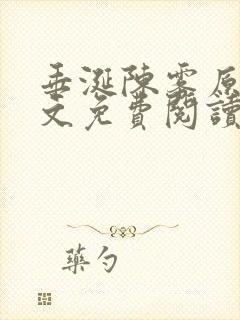 垂涎陳霧原
文免費閱讀
藥勺